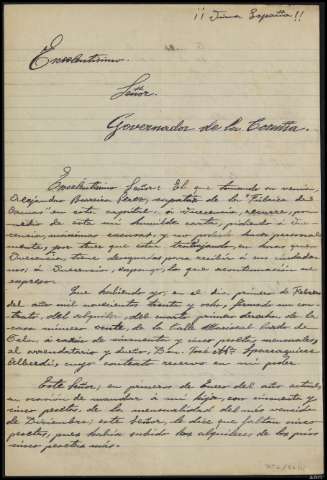 ¡¡ Viva España!!
Excelentísimo.
Señor.
Governador de la Coruña.
Excelentísimo Señor: El que teniendo su venia,
Alejandro Barreiro Pérez, empleado de la "Fábrica de
Armas" en esta capital, a Vuecencia, recurre, por
medio de este mi humilde escrito, pidiendo a Vue-
cencia, me
mente, por tener que estar trabajando, en horas que
Vuecencia, tiene designadas para recibir a sus ciudada-
nos; a Vuecencia, expongo, lo que a continuación se
expresa.
Que habiendo yo, en el día, primero de Febrero
del año mil novecientos treinta y ocho, firmado un con-
trato, del alquiler, del cuarto primero derecha de la
casa número veinte, de la Calle Marcial Pardo de
Cela, a razón de veinticinco y cinco pesetas mensuales,
al arrendatario y dueño, Don. José Mª.
Alberdi, cuyo contrato reservo en mi poder.
Este Señor, en primeros de Enero del año actual,
en ocasión de mandar a mi hija, con veinticinco y
cinco pesetas, de la mensualidad del mes vencido
de Diciembre; este Señor, le dice que faltan cinco
pesetas, pues había subido los alquileres de los pisos
cinco pesetas más.